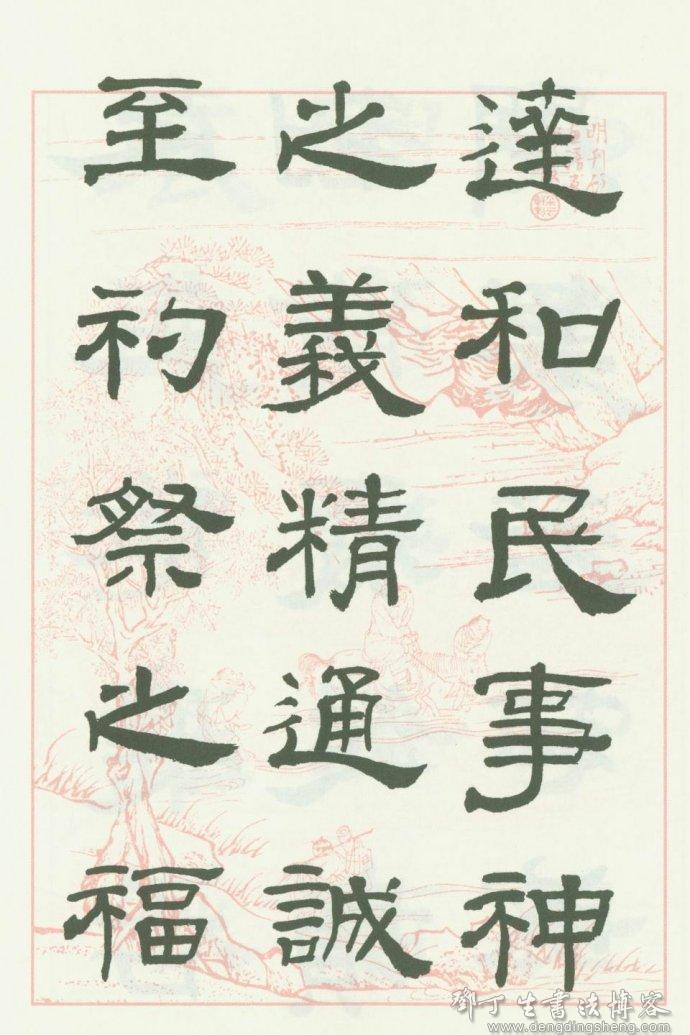 達和民事神
之義精通誠
至礿祭之福
鄧丁生書法博客
www.dengdingsheng.com